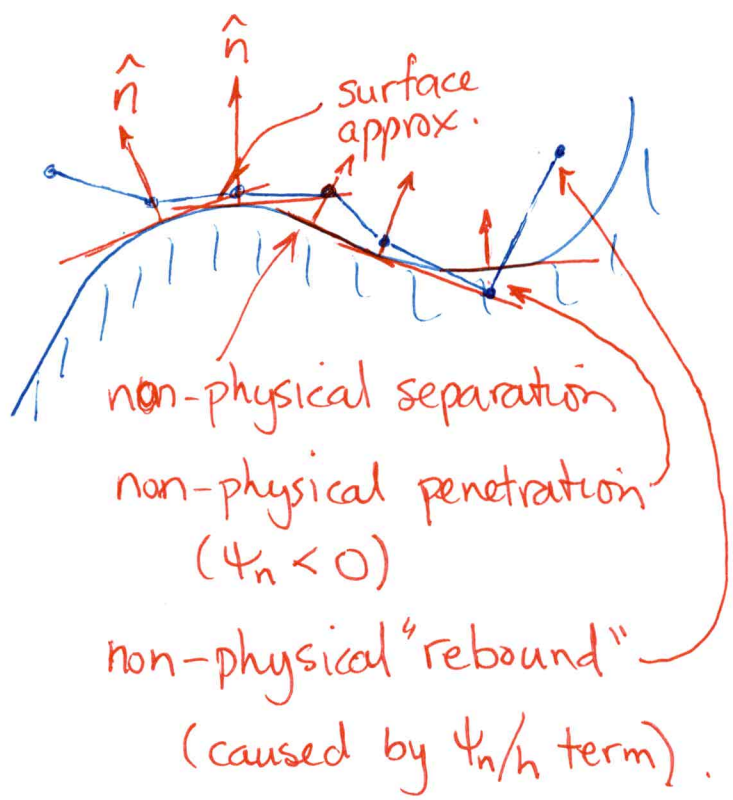 n̂
n̂
surface
approx.
non-physical separation
non-physical penetration
(Ψn < 0)
non-physical "rebound"
(caused by Ψn/h term).